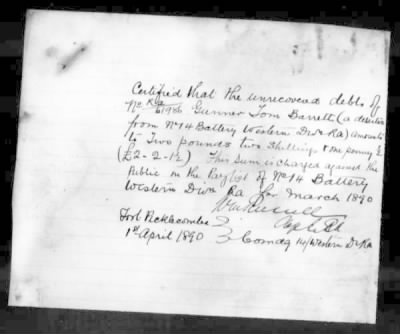 Certified that the unrecovered debts of
No RA/61986 Gunner Tom Barrett (a deserter
from No 14 Battery Western Divn RA) amounts
to Two pounds two shillings & one penny ½
(£2-2-1½) This sum is charged against the
Public in the Paylist of No 14 Battery
Western Divn RA for March 1890
Capt RA
Fort Picklecombe
1st April 1890 Comdg 14/Western Dn RA